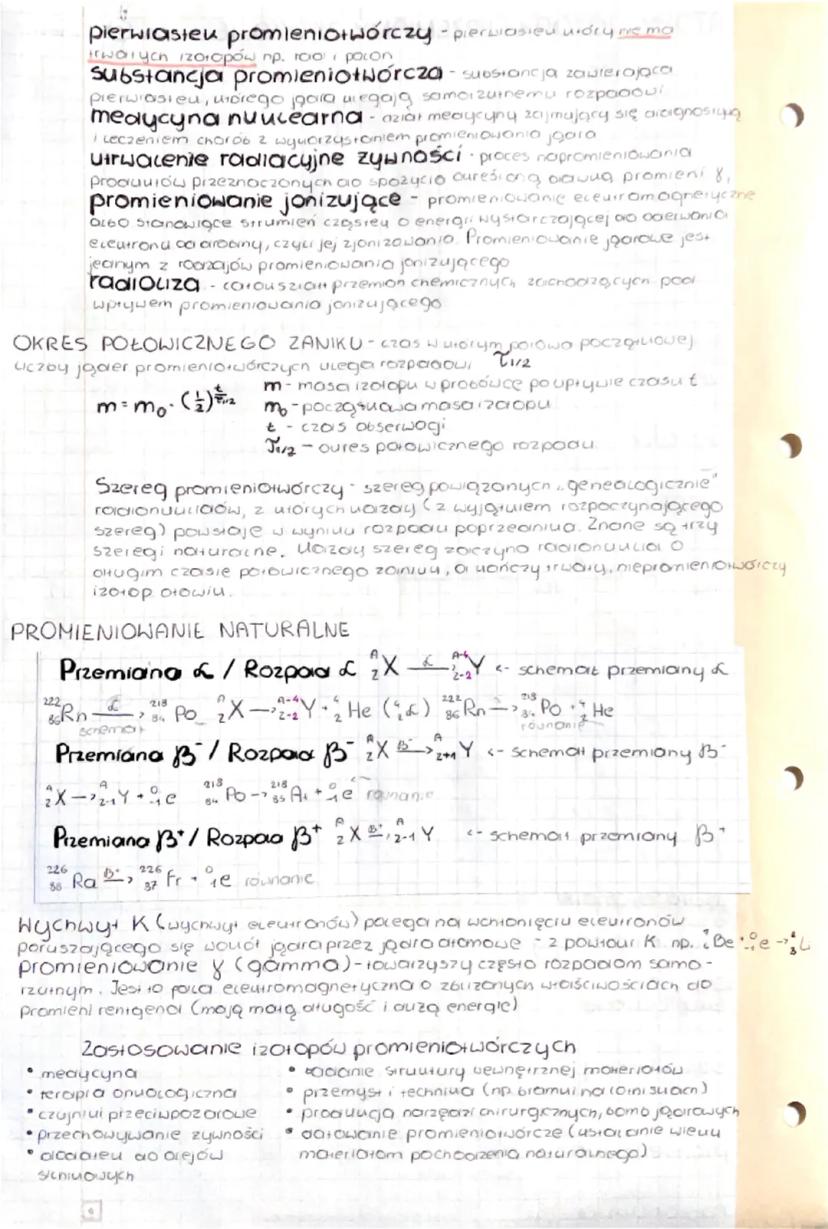 pierwiastek promieniotwórczy - pierwiastek który nie ma
trwałych izotopów np. rad i polon
substancja promieniotwórcza - substancja zawierająca
pierwiastek, którego jądra ulegają samorzutnemu rozpadowi
medycyna nuklearna - dział medycyny zajmujący się diagnostyką
i leczeniem chorób z wykorzystaniem promieniowania jądra
utrwalenie radiacyjne żywności - proces napromieniowania
produktów przeznaczonych do spożycia określoną dawką promieni γ,
promieniowanie jonizujące - promieniowanie elektromagnetyczne
albo stanowiące strumień cząstek o energii wystarczającej do oderwania
elektronu od drobiny, czyli jej zjonizowania. Promieniowanie jądrowe jest
jednym z rodzajów promieniowania jonizującego
radioliza - całokształt przemian chemicznych zachodzących pod
wpływem promieniowania jonizującego
OKRES POŁOWICZNEGO ZANIKU - czas w którym połowa początkowej
liczby jąder promieniotwórczych ulega rozpadowi τ1/2
m = m₀ · (1/2)^(t/τ1/2) m - masa izotopu w probówce po upływie czasu t
m₀ - początkowa masa izotopu
t - czas obserwacji
τ1/2 - okres połowicznego rozpadu
Szereg promieniotwórczy - szereg powiązanych „genealogicznie"
radionuklidów, z których każdy (z wyjątkiem rozpoczynającego
szereg) powstaje w wyniku rozpadu poprzednika. Znane są trzy
szeregi naturalne. Każdy szereg zaczyna radionuklid o
długim czasie połowicznego zaniku, a kończy trwały, niepromieniotwórczy
izotop ołowiu.
PROMIENIOWANIE NATURALNE
Przemiana α / Rozpad α ᴬ_Z X —α→ ᴬ⁻⁴_Z-2 Y <- schemat przemiany α
²²²₈₆Rn —α→ ²¹⁸₈₄Po ᴬ_Z X → ᴬ⁻⁴_Z-2 Y + ⁴₂He (⁴₂α) ²²²₈₆Rn → ²¹⁸₈₄Po + ⁴₂He
schemat równanie
Przemiana β⁻ / Rozpad β⁻ ᴬ_Z X —β⁻→ ᴬ_Z+1 Y <- schemat przemiany β⁻
ᴬ_Z X → ᴬ_Z-1 Y + ⁰₋₁e ²¹⁸₈₄Po → ²¹⁸₈₅At + ⁰₋₁e równanie
Przemiana β⁺ / Rozpad β⁺ ᴬ_Z X —β⁺→ ᴬ_Z-1 Y <- schemat przemiany β⁺
²²⁶₈₈Ra —β⁺→ ²²⁶₈₇Fr + ⁰₁e równanie
Wychwyt K (wychwyt elektronów) polega na wchłonięciu elektronów
poruszającego się wokół jądra przez jądro atomowe - z powłoki K np. ⁷₄Be + ⁰₋₁e → ⁷₃Li
promieniowanie γ (gamma) - towarzyszy często rozpadom samo-
rzutnym. Jest to fala elektromagnetyczna o zbliżonych właściwościach do
promieni rentgena (mają małą długość i dużą energię)
Zastosowanie izotopów promieniotwórczych
• medycyna
• terapia onkologiczna
• czujniki przeciwpożarowe
• przechowywanie żywności
• dodatek do olejów
silnikowych
• badanie struktury wewnętrznej materiałów
• przemysł i technika (np bramki na lotniskach)
• produkcja narzędzi chirurgicznych, bomb jądrowych
• datowanie promieniotwórcze (ustalanie wieku
materiałom pochodzenia naturalnego)